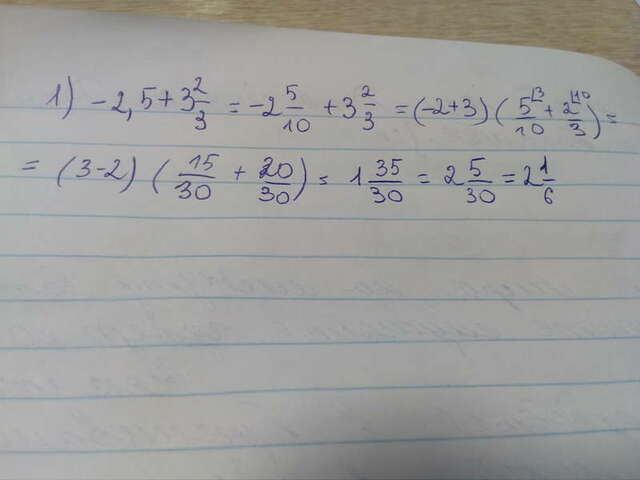 1) -2,5 + 3 2/3 = -2 5/10 + 3 2/3 = (-2+3) (5/10 ⌊3 + 2/3 ⌊10) =
= (3-2) (15/30 + 20/30) = 1 35/30 = 2 5/30 = 2 1/6